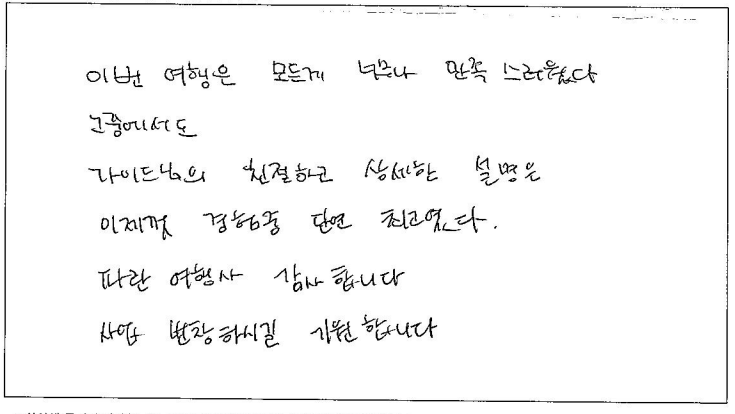 이번 여행은 모든게 너무나 만족스러웠다
그중에서도
가이드님의 친절하고 상세한 설명은
이제껏 경험중 단연 최고였다.
파란 여행사 감사합니다
사업 번창하시길 기원합니다